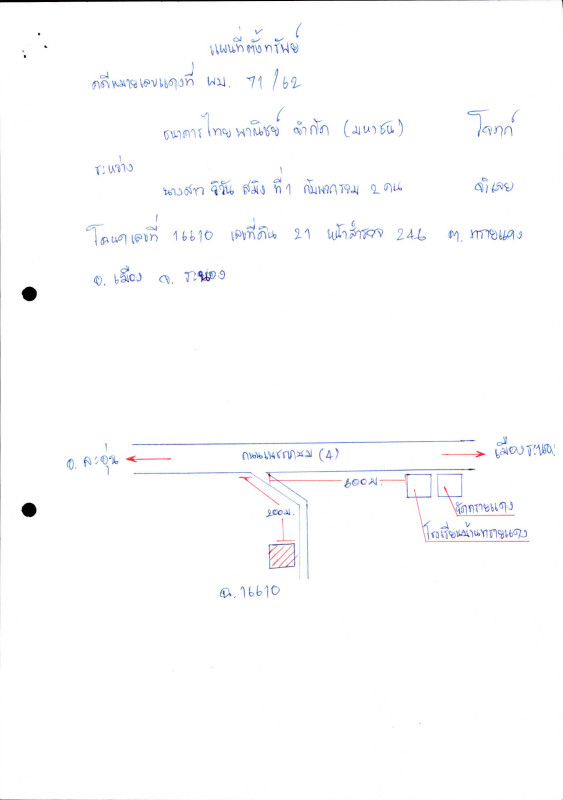 แผนที่ตั้งทรัพย์
คดีหมายเลขแดงที่ ผบ. 71/62
ธนาคารไทยพาณิชย์ จำกัด (มหาชน) โจทก์
ระหว่าง
นางสาว ที่1 กับพวกรวม 2 คน จำเลย
โฉนดเลขที่ 16610 เลขที่ดิน 21 หน้าสำรวจ 246 ต. ทรายแดง
อ. เมือง จ. ระนอง
อ. ละอุ่น
ถนนเพชรเกษม (4)
เมืองระนอง
600 ม.
วัดทรายแดง
200 ม.
โรงเรียนบ้านทรายแดง
ฉ. 16610